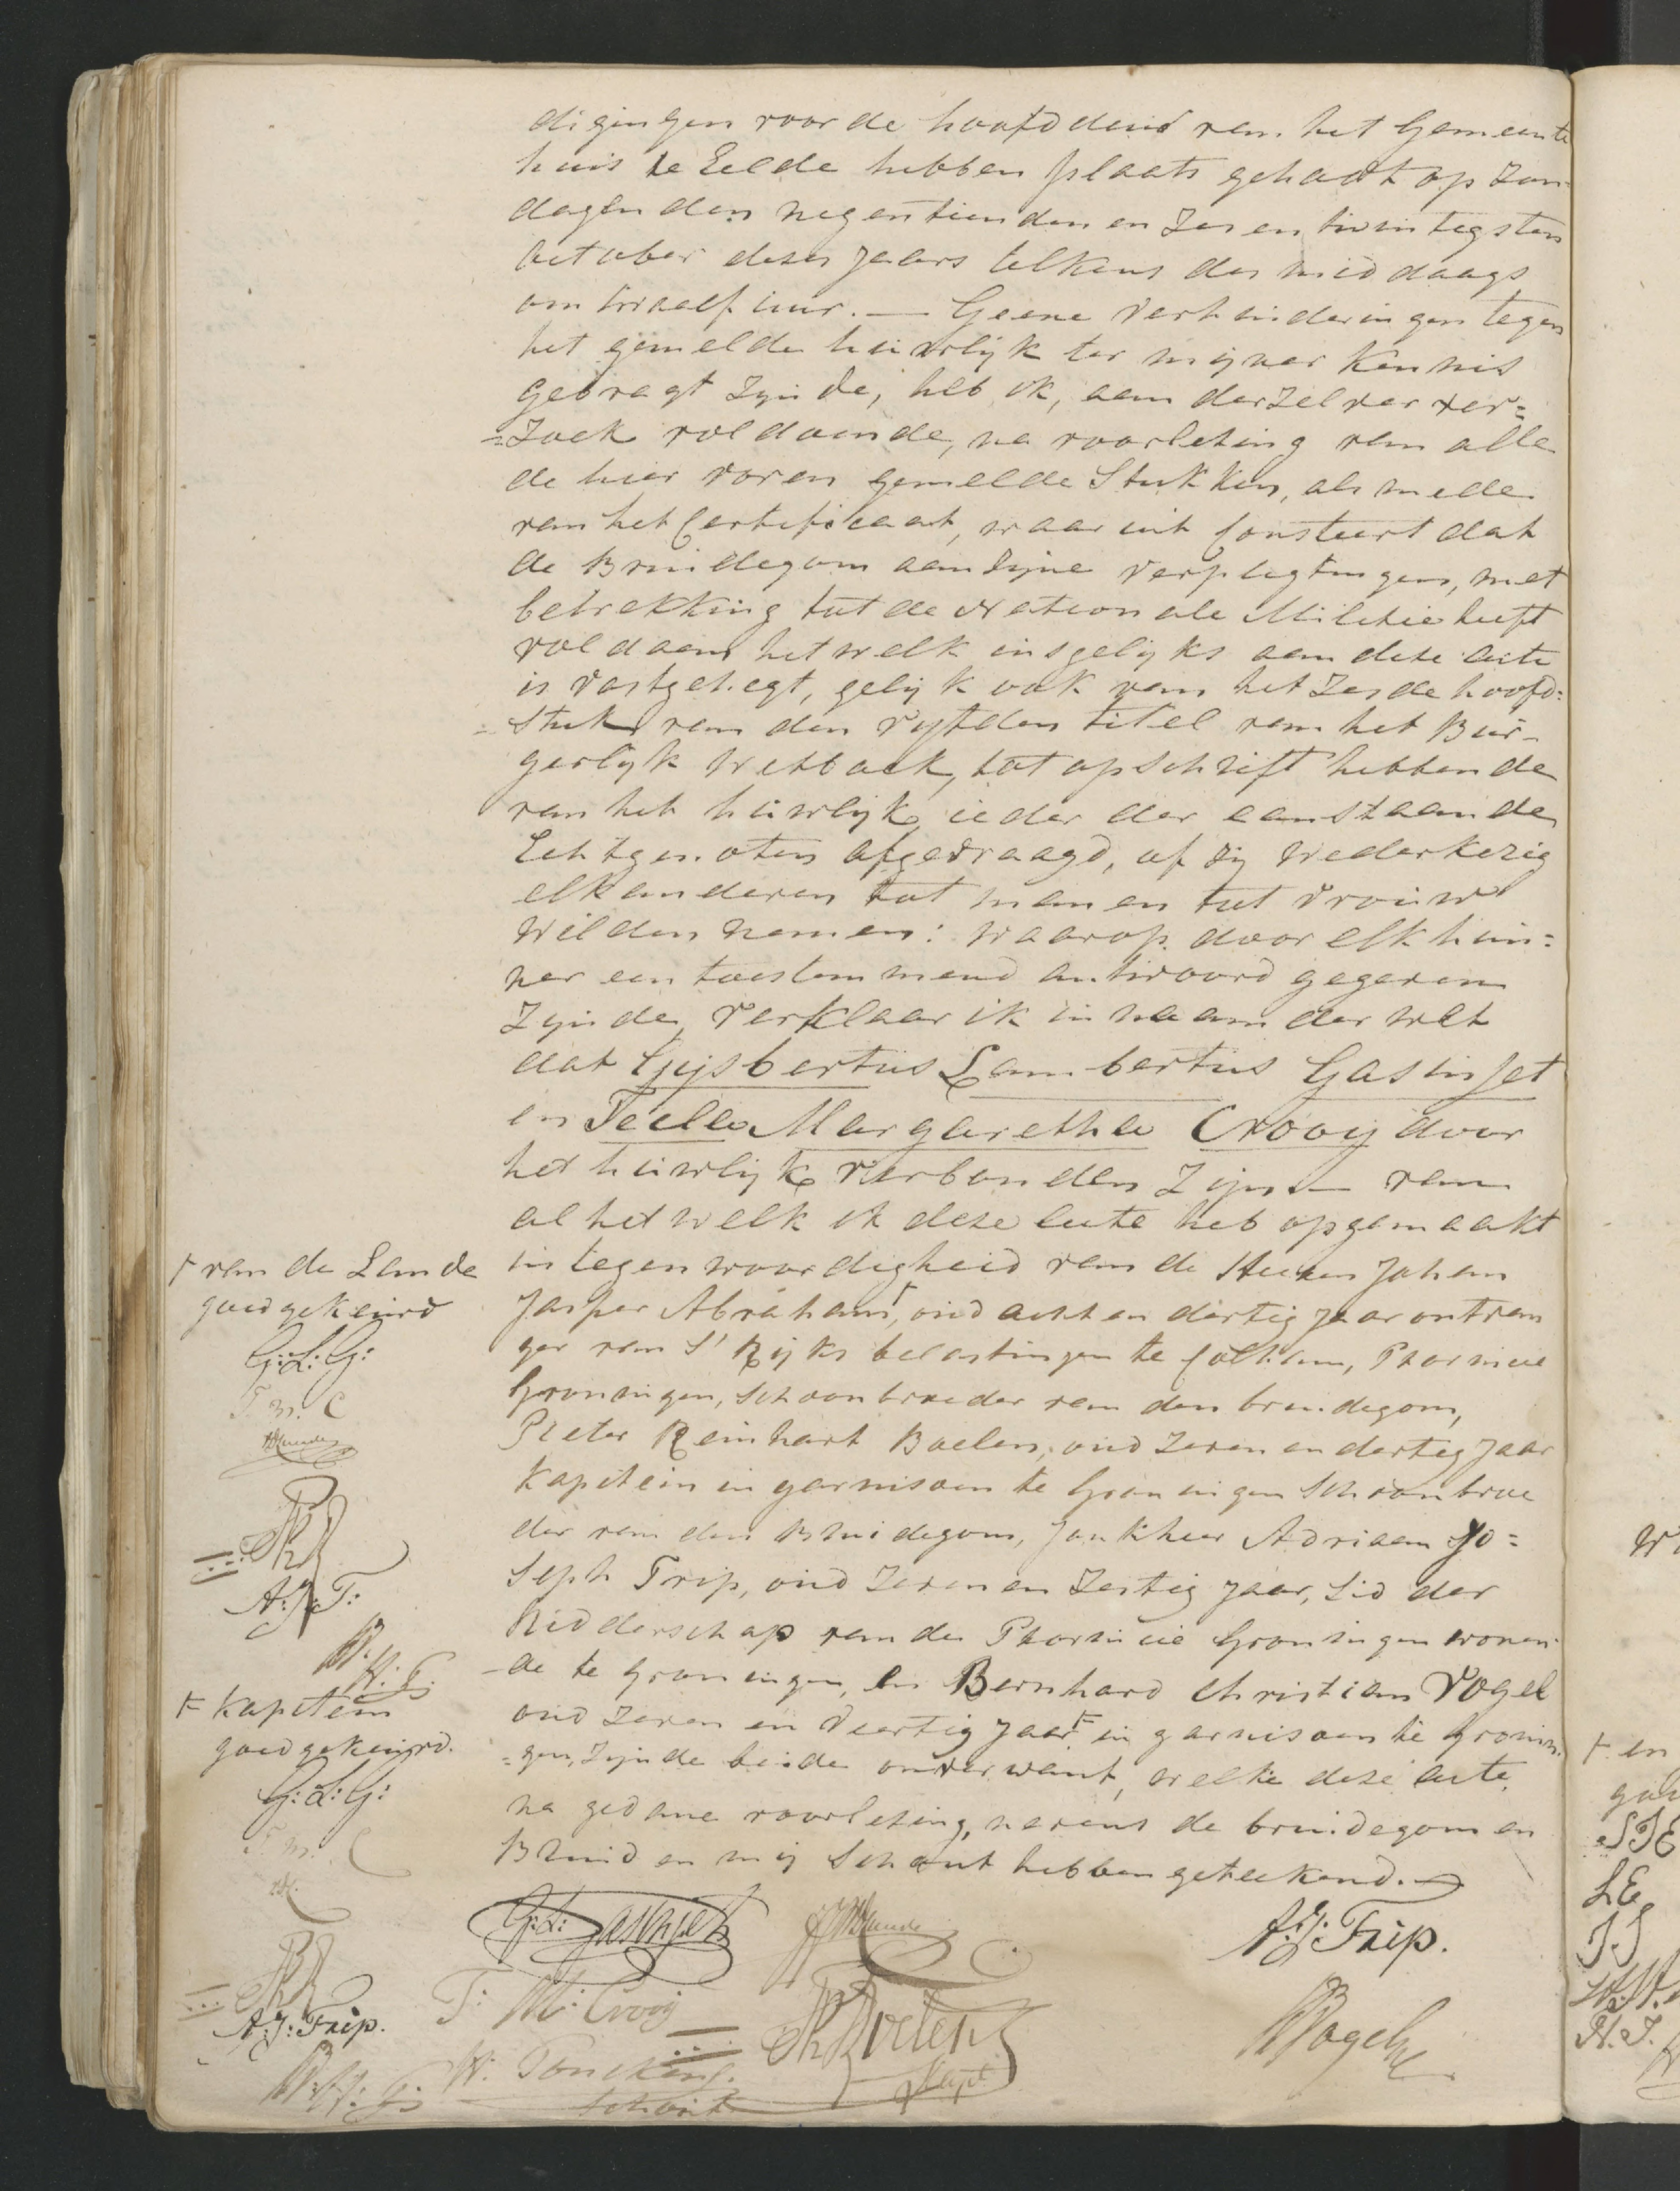 digingen voor de hoofddeur van het Gemeente
huis te Eelde hebben plaats gehadt op Zon-
dagen den negentienden en Zesentwintigsten
October dezes jaars telkens des middaags
om twaalf uur. — Geene Verhinderingen tegen
het gemelde huwlijk ter mijner kennis
gebragt Zijnde, heb ik, aan derzelver ver=
=Zoek voldoende, na voorlezing van alle
de hier voren gemelde Stukken, als mede
van het Certificaat, waar uit Consteert dat
de Bruidegom aan Zijne Verpligtingen, met
betrekking tot de Nationale Militie heeft
voldaan, het welk insgelijks aan deze acte
is vastgehegt, gelijk ook van het Zesde hoofd=
=Stuk van den Vyfden titel van het Bur-
gerlijk Wetboek, tot opschrift hebbende
van het huwlijk, ieder der aanstaande
Echtgenoten afgevraagd, of zij Wederkerig
elkanderen tot man en tot Vrouw
Wilden nemen: Waarop door elk hun=
ner een toestemmend antwoord gegeven
Zijnde, Verklaar ik in naam der wet
dat Gijsbertus Lambertus Gasinjet
en Tecla Margaretha Crooij door
het huwlijk Verbonden Zijn — van
al het welk ik deze acte heb opgemaakt
in tegenwoordigheid van de Heeren Johan
Jasper Abraham⊦, oud acht en dertig jaar ontvan
ger van S' Rijks belastingen te Colham, Provincie
Groningen, Schoonbroeder van den bruidegom,
Pieter Reinhart Boelen, oud Zeven en dertig jaar
Kapitein in garnisoen te Groningen Schoonbroe
der van den Bruidegom, Jonkheer Adriaan Jo=
Seph Trip, oud Zeven en Zestig jaar, Lid der
Ridderschap van de Provincie Groningen wonen-
-de te Groningen, en Bernhard Christiaan Vogel
oud Zeven en Veertig jaar⊦ in garnisoen te Gronin
=gen, Zijnde beide onverwant, welke deze acte,
na gedane voorlezing, nevens de bruidegom en
Bruid en mij Schout hebben geteekend. —
⊦ van der Lande
goedgekeurd
G: L: G:
T. M. C
A: J: T:
⊦ Kapitein
goedgekeurd.
G: L: G:
T. M. C
A: J: Trip.
G: L: Gasinjet
A: J: Trip.
T: M: Crooij
PR Boelen
Kapt
Vogel
Schout
⊦ en
LE